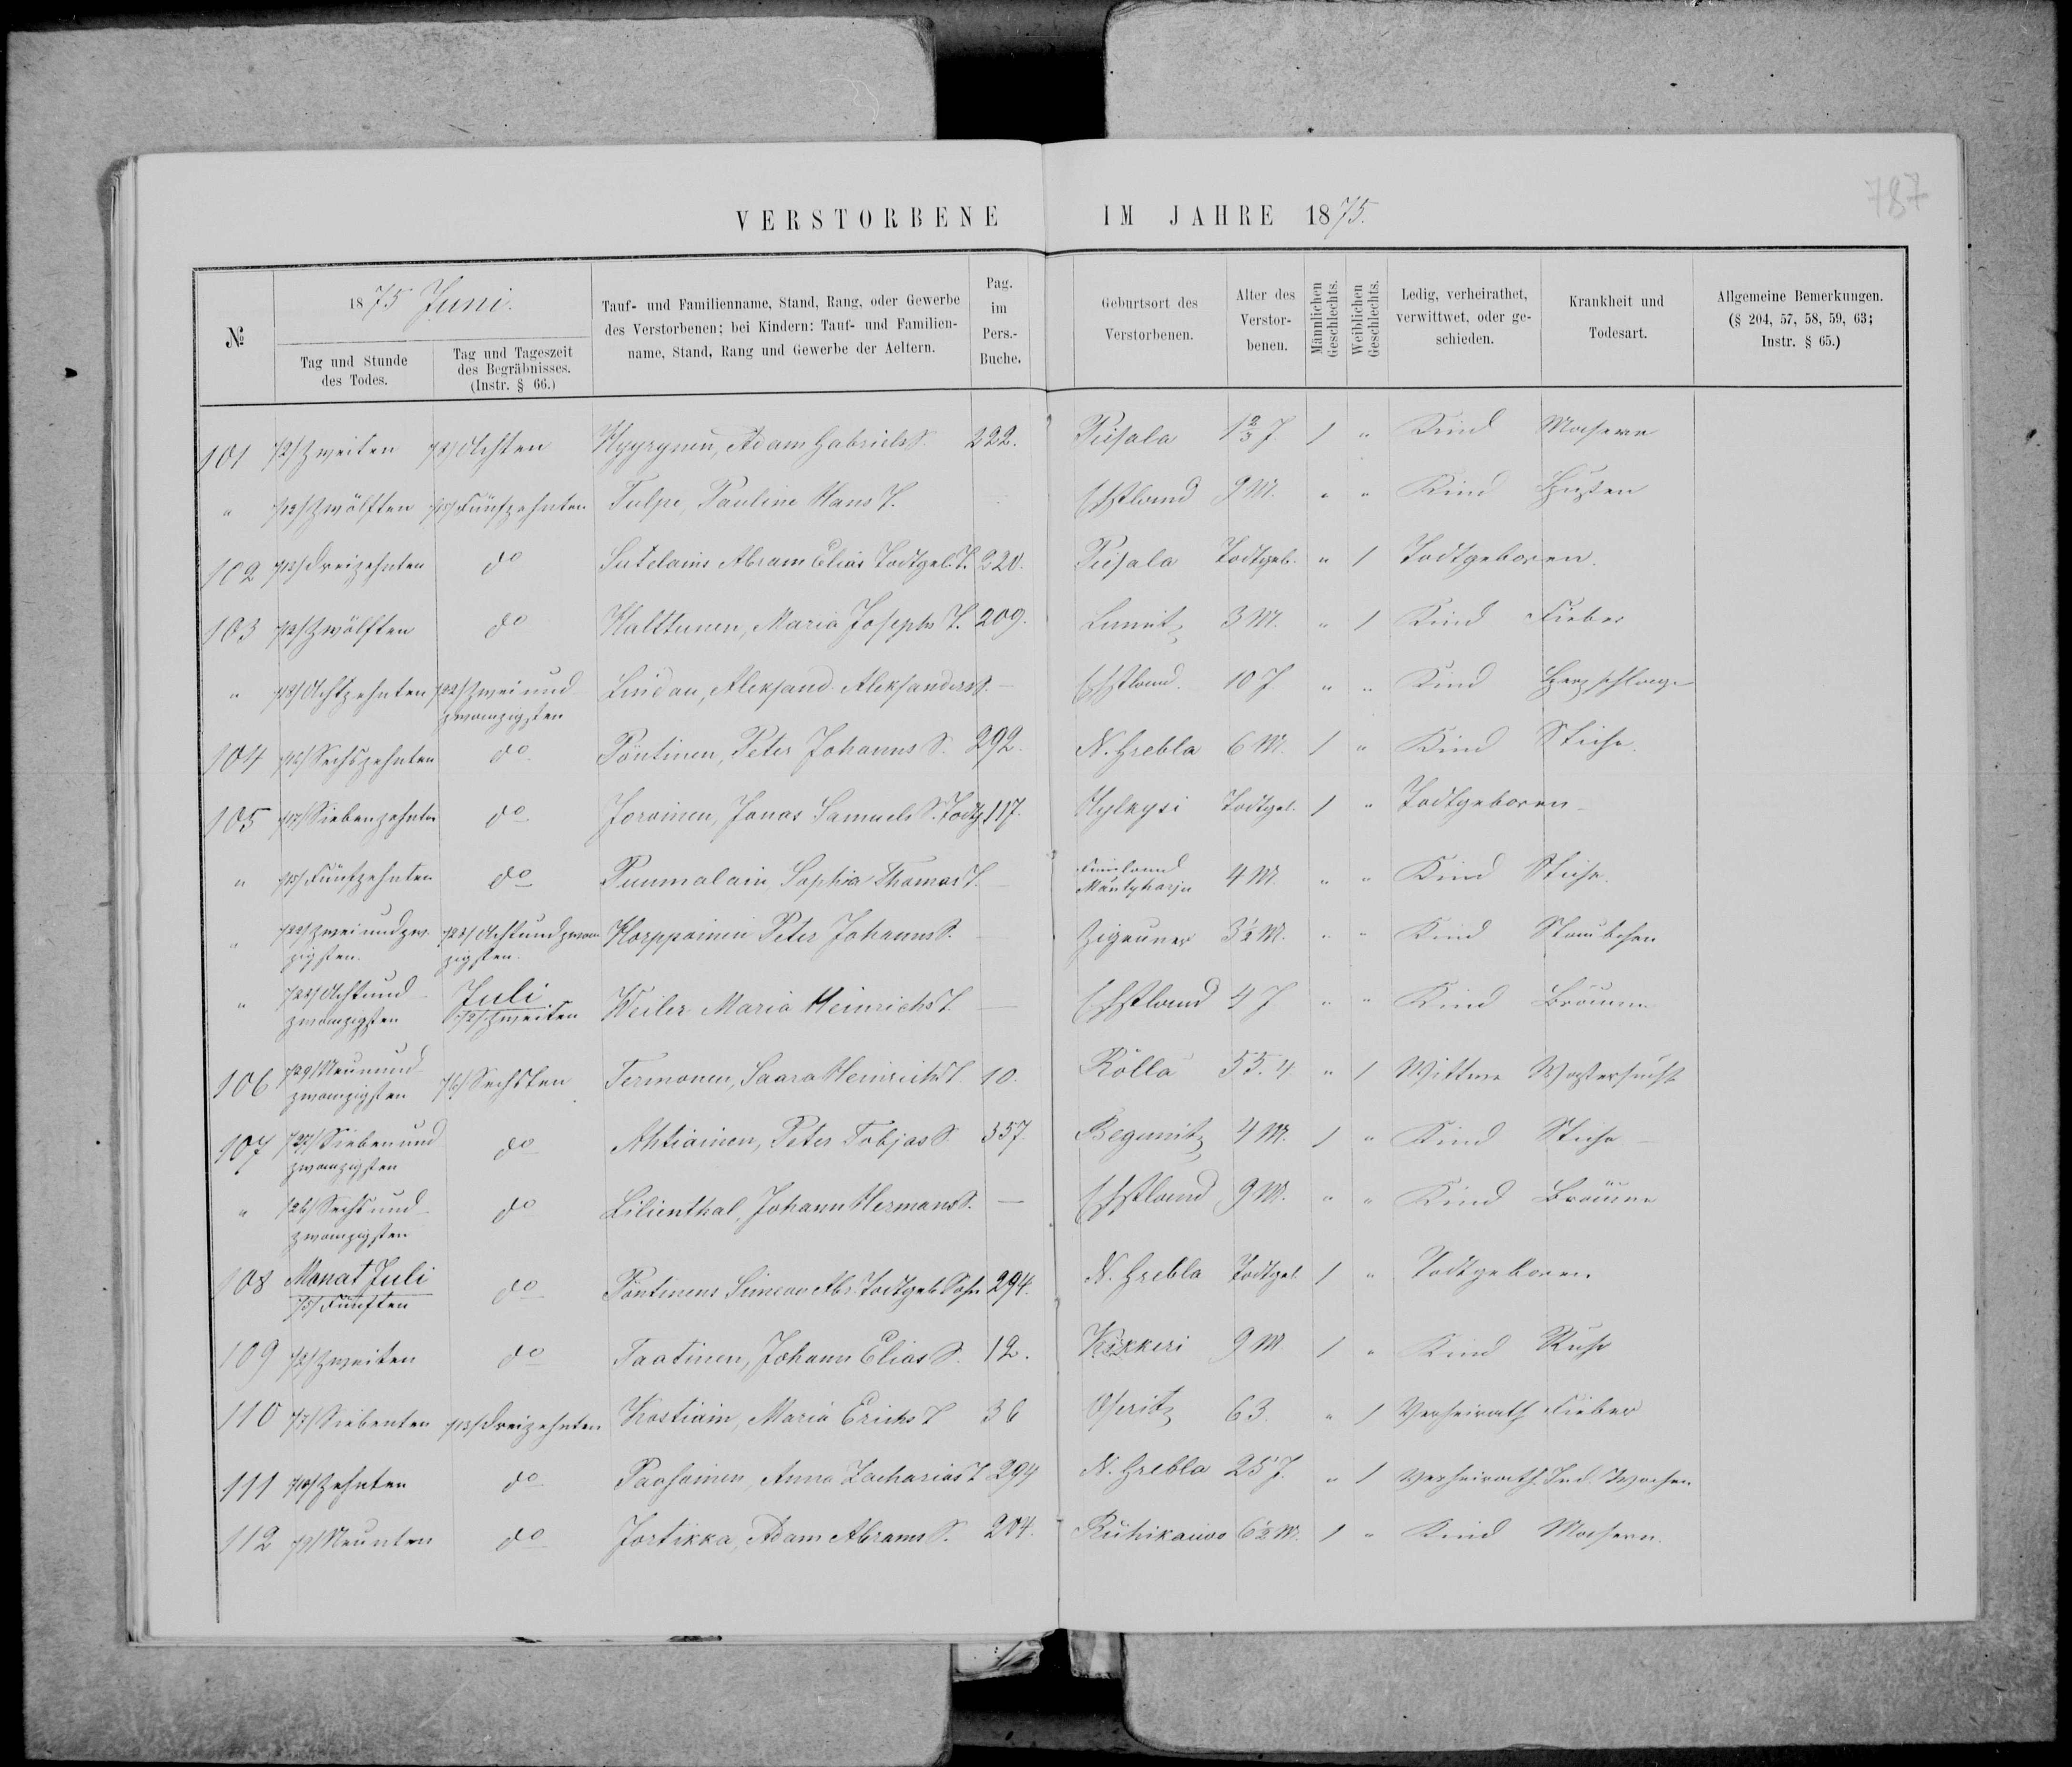 787
VERSTORBENE IM JAHRE 1875.
№
1875 Juni.
Tag und Stunde des Todes.
Tag und Tageszeit des Begräbnisses. (Instr. § 66.)
Tauf- und Familienname, Stand, Rang, oder Gewerbe des Verstorbenen; bei Kindern: Tauf- und Familienname, Stand, Rang und Gewerbe der Aeltern.
Pag. im Pers.-Buche.
Geburtsort des Verstorbenen.
Alter des Verstorbenen.
Männlichen Geschlechts.
Weiblichen Geschlechts.
Ledig, verheirathet, verwittwet, oder geschieden.
Krankheit und Todesart.
Allgemeine Bemerkungen. (§ 204, 57, 58, 59, 63; Instr. § 65.)
101 /2/ Zweiten /8/ Achten Hyyrynen, Adam Gabriels S. 222. Puisala 1 2/3 J. 1 " Kind Masern
" /12/ Zwölften /15/ Fünfzehnten Tulpe, Pauline Hans T. Ehstland 9 M. " " Kind Husten
102 /13/ Dreizehnten do Sutelains Abram Elias Todtgeb. T. 220. Puisala Todtgeb. " 1 Todtgeboren.
103 /12/ Zwölften do Halttunen, Maria Josephs T. 209. 3 M. " 1 Kind Fieber
" /18/ Achtzehnten /22/ Zweiund zwanzigsten Lindau, Aleksand. Aleksanders S. — Ehstland. 10 J. " " Kind
104 /16/ Sechszehnten do Pöntinen, Peter Johanns S. 292. N. Grebla 6 M. 1 " Kind
105 /17/ Siebenzehnten do Joroinen, Jonas Samuels S. Todtg. 117. Hylkysi Todtgeb. 1 " Todtgeboren
" /15/ Fünfzehnten do Puumalain, Sophia Thomas T. — Finnland Mäntyharju 4 M. " " Kind
" /22/ Zweiundzwanzigsten. /28/ Achtundzwanzigsten. Korppoinen Peter Johanns S. — Zigeuner 3½ M. " " Kind
" /28/ Achtund zwanzigsten Juli /2/ Zweiten Weiler Maria Heinrichs T. — Ehstland 4 J " " Kind Bräune
106 /29/ Neunund zwanzigsten /6/ Sechsten Termonen, Saara Heinrichs T. 10. Rölla 55. " 1 Wittwe Wassersucht
107 /27/ Siebenund zwanzigsten do Ahtiainen, Peter Tobjas S. 357. Begunitz 4 M. 1 " Kind
" /26/ Sechsund zwanzigsten do Lilienthal, Johann Hermans S. — Ehstland 9 M. " " Kind Bräune
108 Monat Juli /5/ Fünften do Pöntinens Simeon Abr. Todtgeb. Sohn 294. N. Grebla Todtgeb. 1 " Todtgeboren.
109 /2/ Zweiten do Taatinen, Johann Elias S. 12. Kikkeri 9 M 1 " Kind Ruhr
110 /7/ Siebenten /13/ Dreizehnten Kostiain, Maria Erichs T 36 Oseritz 63. " 1 Verheirath. Fieber
111 /10/ Zehnten do Paosoinen, Anna Zacharias T 294 N. Grebla 25 J. " 1 Verheirath.
112 /9/ Neunten do Jortikka, Adam Abrams S. 204. 6½ M. 1 " Kind Masern.